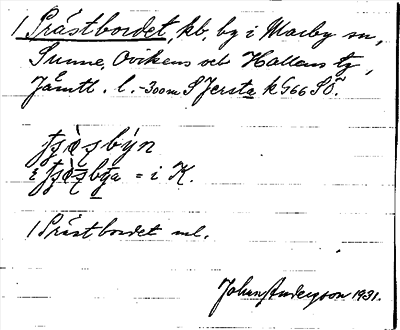 1 Prästbordet, kb, by i Marby sn,
Sunne, Ovikens och Hallens tg,
Jämtl. l. -300m S Jersta k G66 SÖ.
i = i K.
1 Präst bordet ml.
Johan Anderson 1931.